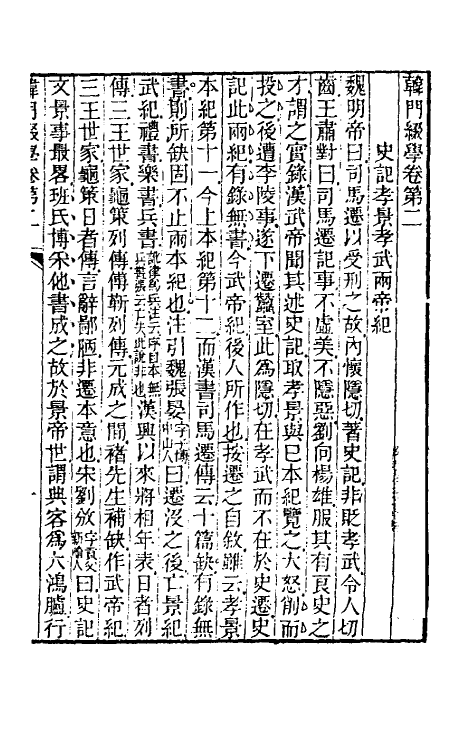 韓門綴學卷第二
史記孝景孝武兩帝紀
魏明帝曰司馬遷以受刑之故內懷隱切著史記非貶孝武令人切
齒王肅對曰司馬遷記事不虛美不隱惡劉向楊雄服其有良史之
才謂之實錄漢武帝聞其述史記取孝景與己本紀覽之大怒削而
投之後遭李陵事遂下遷蠶室此爲隱切在孝武而不在於史遷史
記此兩紀有錄無書今武帝紀後人所作也按遷之自敘雖云孝景
本紀第十一今上本紀第十二而漢書司馬遷傳云十篇缺有錄無
書則所缺固不止兩本紀也注引魏張晏字子博中山人曰遷沒之後亡景紀
武紀禮書樂書兵書漢興以來將相年表日者列
傳三王世家龜策列傳傅靳列傳元成之間褚先生補缺作武帝紀
三王世家龜策日者傳言辭鄙陋非遷本意也宋劉攽字貢父新喻人曰史記
文景事最畧班氏博采他書成之故於景帝世謂典客爲大鴻臚行
韓門綴學卷第二
一